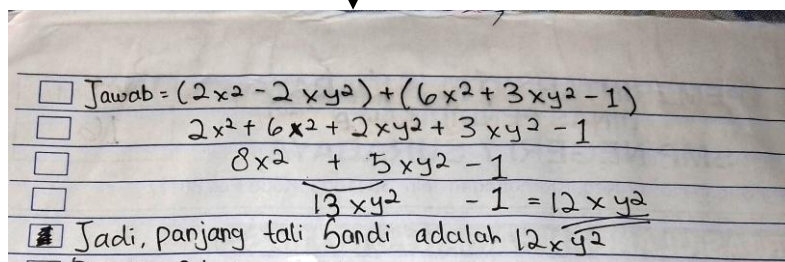 Jawab = (2x² - 2xy²) + (6x² + 3xy² - 1)
2x² + 6x² + 2xy² + 3xy² - 1
8x² + 5xy² - 1
13xy² - 1 = 12xy²
Jadi, panjang tali Sandi adalah 12xy²